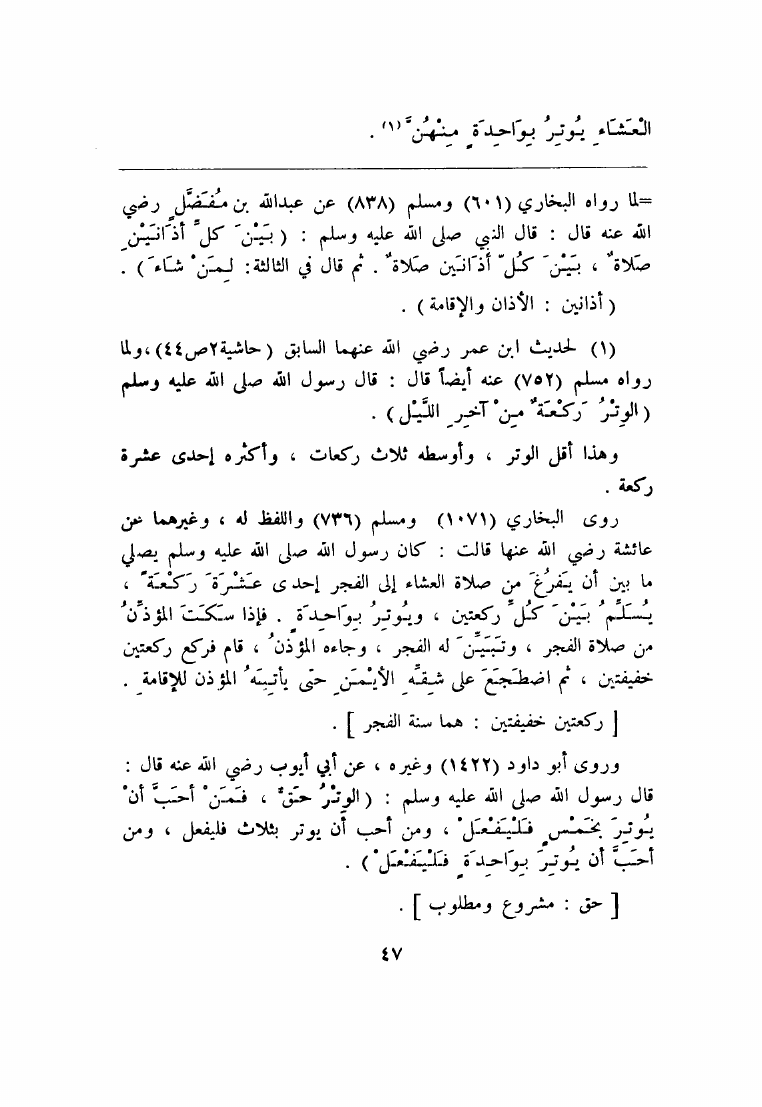 الْعَشَاءِ يُوتِرُ بِوَاحِدَةٍ مِنْهُنَّ (١) .
=لما رواه البخاري (٦٠١) ومسلم (٨٣٨) عن عبدالله بن مُفَضَّلٍ رضي
الله عنه قال : قال النبي صلى الله عليه وسلم : ( بَيْنَ كلِّ أذَانَيْنِ
صَلاةٌ ، بَيْنَ كُلِّ أذَانَين صَلاةٌ . ثم قال في الثالثة : لِمَنْ شَاءَ ) .
( أذانين : الأذان والإقامة ) .
(١) لحديث ابن عمر رضي الله عنهما السابق (حاشية٢ص٤٤)، ولما
رواه مسلم (٧٥٢) عنه أيضاً قال : قال رسول الله صلى الله عليه وسلم
( الوِتْرُ رَكْعَةٌ مِنْ آخِرِ اللَّيْلِ ) .
وهذا أقل الوتر ، وأوسطه ثلاث ركعات ، وأكثره إحدى عشرة
ركعة .
روى البخاري (١٠٧١) ومسلم (٧٣٦) واللفظ له ، وغيرهما عن
عائشة رضي الله عنها قالت : كان رسول الله صلى الله عليه وسلم يصلي
ما بين أن يَفْرُغَ من صلاة العشاء إلى الفجر إحدى عَشْرَةَ رَكْعَةً ،
يُسَلِّمُ بَيْنَ كُلِّ ركعتين ، ويُوتِرُ بِوَاحِدَةٍ . فإذا سَكَتَ المؤذِّنُ
من صلاة الفجر ، وتَبَيَّنَ له الفجر ، وجاءه المؤذنُ ، قام فركع ركعتين
خفيفتين ، ثم اضطَجَعَ على شِقِّهِ الأيْمَنِ حتى يأتيَهُ المؤذن للإقامةِ .
[ ركعتين خفيفتين : هما سنة الفجر ] .
وروى أبو داود (١٤٢٢) وغيره ، عن أبي أيوب رضي الله عنه قال :
قال رسول الله صلى الله عليه وسلم : ( الوِتْرُ حَقٌّ ، فَمَنْ أحَبَّ أنْ
يُوتِرَ بخَمْسٍ فَلْيَفْعَلْ ، ومن أحب أن يوتر بثلاث فليفعل ، ومن
أحَبَّ أن يُوتِرَ بِوَاحِدَةٍ فَلْيَفْعَلْ ) .
[ حق : مشروع ومطلوب ] .
٤٧